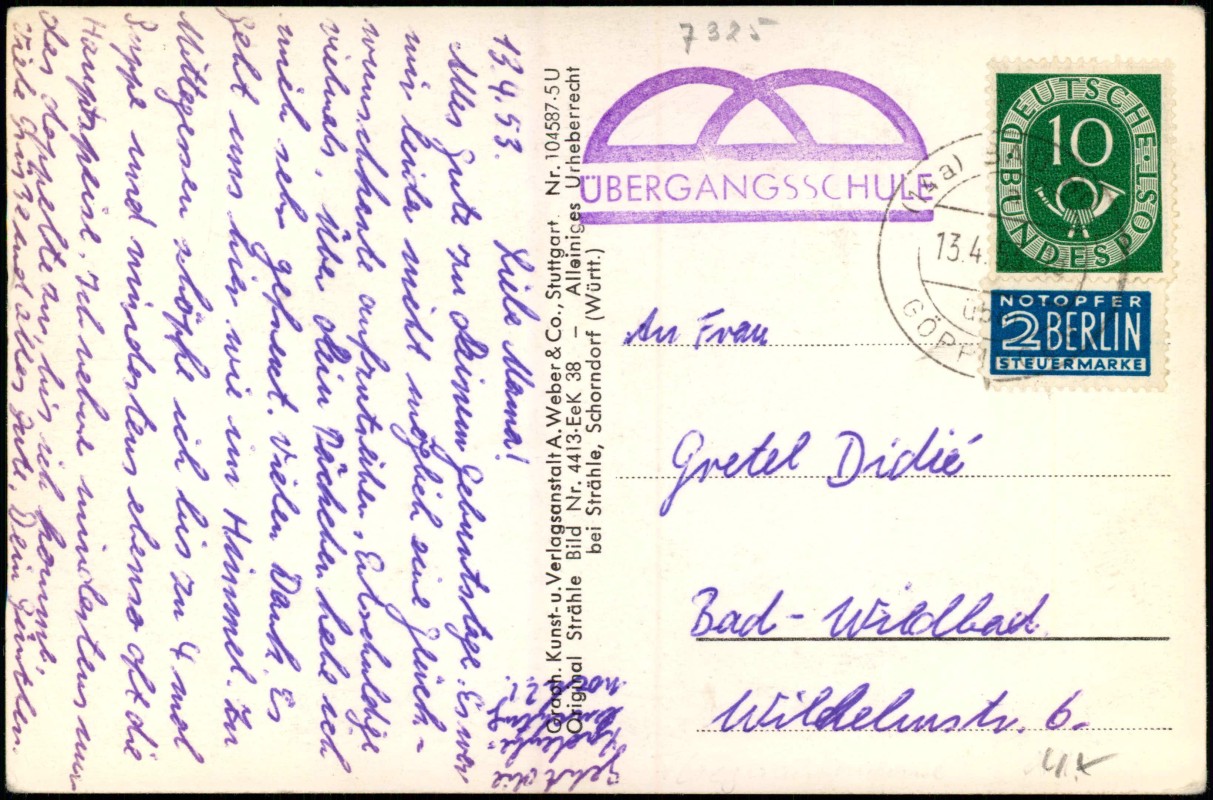 13.4.53.
Liebe Mama!
Alles Gute zu Deinem Geburtstage. Es war
mir leider nicht möglich eine Glück-
wunschkarte aufzutreiben. Entschuldige
vielmals. Über Dein Päckchen habe ich
mich sehr gefreut. Vielen Dank. Es
geht uns hier wie im Himmel. Zu
Mittagessen schöpfe ich bis zu 4 mal
Suppe und mindestens ebenso oft die
Hauptspeise. Ich nehme mindestens um
das doppelte zu, bis ich komme.
Viele Grüsse und alles Gute, Dein
Geht die
noch
Graph. Kunst- u. Verlagsanstalt A. Weber & Co., Stuttgart. Nr. 104587·5U
Original Strähle Bild Nr. 4413·EeK 38 – Alleiniges Urheberrecht
bei Strähle, Schorndorf (Württ.)
7325
ÜBERGANGSSCHULE
DEUTSCHE BUNDESPOST
10
(14a)
13.4.
GÖPP
NOTOPFER
2 BERLIN
STEUERMARKE
An Frau
Gretel Didié
Bad-Wildbad
Wilhelmstr. 6.